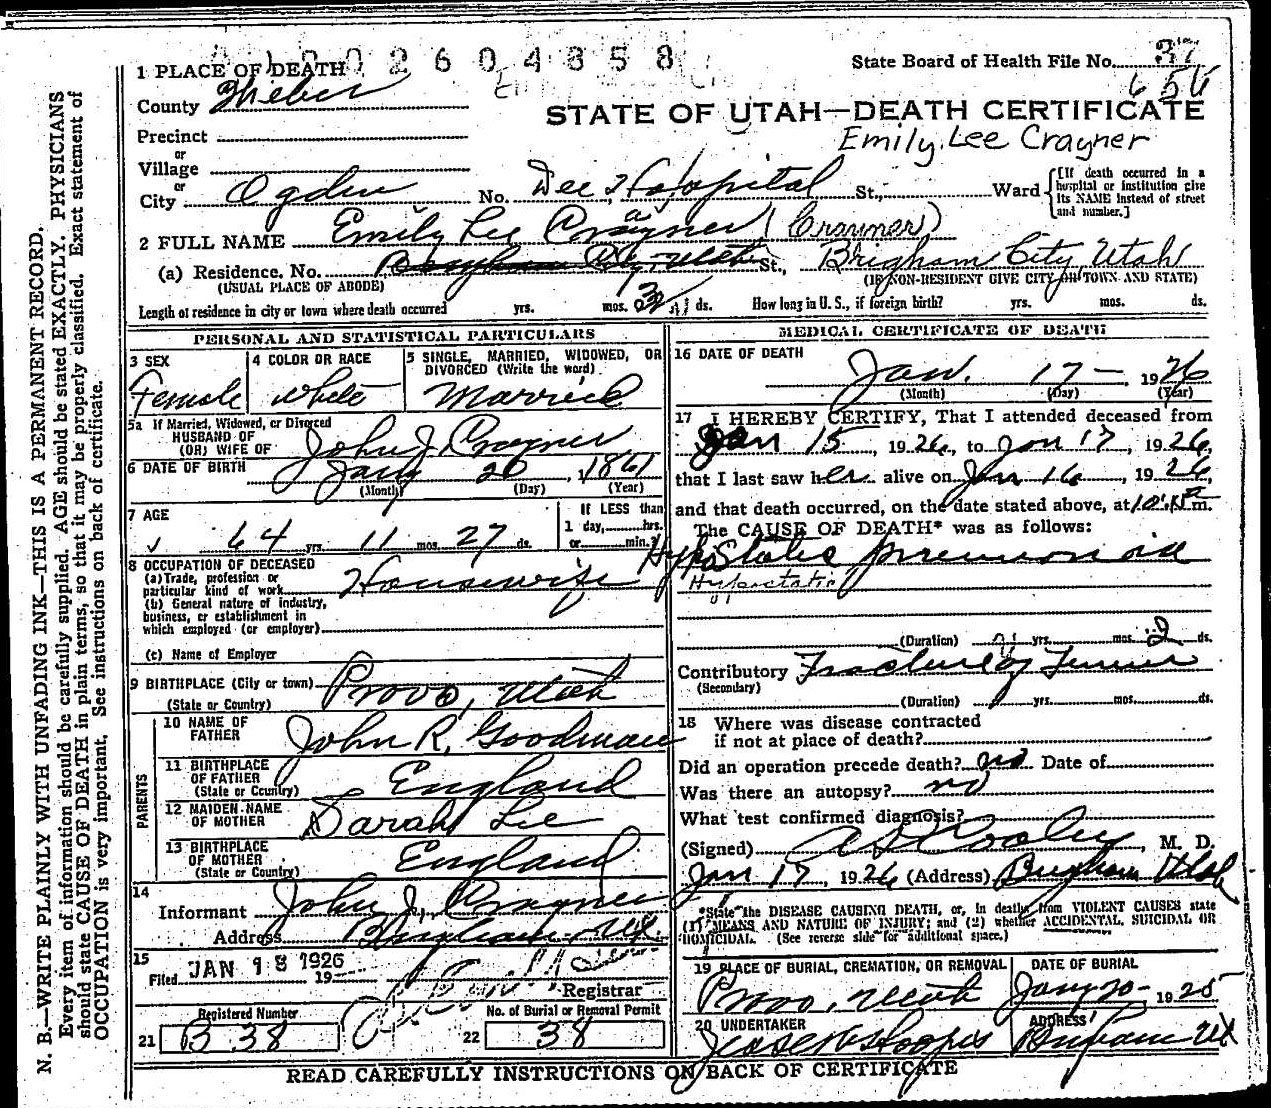 2604358
State Board of Health File No. 37
656
1 PLACE OF DEATH
County Weber
STATE OF UTAH—DEATH CERTIFICATE
Emily Lee Crayner
Precinct
or
Village
or
City Ogden No. Dee Hospital St., Ward
[If death occurred in a hospital or institution give its NAME instead of street and number.]
2 FULL NAME Emily Lee Crayner (Craymer)
(a) Residence, No. Brigham City, Utah St., Brigham City, Utah
(USUAL PLACE OF ABODE) (IF NON-RESIDENT GIVE CITY OR TOWN AND STATE)
Length of residence in city or town where death occurred yrs. mos. ds. How long in U. S., if foreign birth? yrs. mos. ds.
PERSONAL AND STATISTICAL PARTICULARS
3 SEX
Female
4 COLOR OR RACE
White
5 SINGLE, MARRIED, WIDOWED, OR DIVORCED (Write the word)
Married
5a If Married, Widowed, or Divorced
HUSBAND OF
(OR) WIFE OF John J. Crayner
6 DATE OF BIRTH Jany 20, 1861
(Month) (Day) (Year)
7 AGE
64 yrs. 11 mos. 27 ds.
If LESS than
1 day, hrs.
or min.?
8 OCCUPATION OF DECEASED
(a) Trade, profession or
particular kind of work Housewife
(b) General nature of industry,
business, or establishment in
which employed (or employer)
(c) Name of Employer
9 BIRTHPLACE (City or town) Provo, Utah
(State or Country)
PARENTS
10 NAME OF
FATHER John R. Goodman
11 BIRTHPLACE
OF FATHER England
(State or Country)
12 MAIDEN NAME
OF MOTHER Sarah Lee
13 BIRTHPLACE
OF MOTHER England
(State or Country)
14
Informant John J. Crayner
Address Brigham, Ut
15
Filed JAN 18 1926 19
Registrar
Registered Number
21 B 38
No. of Burial or Removal Permit
22 38
MEDICAL CERTIFICATE OF DEATH
16 DATE OF DEATH
Jan. 17 — 1926
(Month) (Day) (Year)
17 I HEREBY CERTIFY, That I attended deceased from
Jan 15, 1926, to Jan 17, 1926,
that I last saw her alive on Jan 16, 1926,
and that death occurred, on the date stated above, at m.
The CAUSE OF DEATH* was as follows:
Hypostatic pneumonia
Hypostatic
(Duration) yrs. mos. 2 ds.
Contributory Fracture of Femur
(Secondary)
(Duration) yrs. mos. ds.
18 Where was disease contracted
if not at place of death?
Did an operation precede death? no Date of
Was there an autopsy? no
What test confirmed diagnosis?
(Signed) A D Cooley, M. D.
Jan 17, 1926 (Address) Brigham Utah
*State the DISEASE CAUSING DEATH, or, in deaths from VIOLENT CAUSES state
(1) MEANS AND NATURE OF INJURY; and (2) whether ACCIDENTAL, SUICIDAL OR
HOMICIDAL. (See reverse side for additional space.)
19 PLACE OF BURIAL, CREMATION, OR REMOVAL
Provo, Utah
DATE OF BURIAL
Jany 20 - 1925
20 UNDERTAKER
ADDRESS
Brigham Ut
READ CAREFULLY INSTRUCTIONS ON BACK OF CERTIFICATE
N. B.—WRITE PLAINLY WITH UNFADING INK—THIS IS A PERMANENT RECORD.
Every item of information should be carefully supplied. AGE should be stated EXACTLY. PHYSICIANS
should state CAUSE OF DEATH in plain terms, so that it may be properly classified. Exact statement of
OCCUPATION is very important. See instructions on back of certificate.